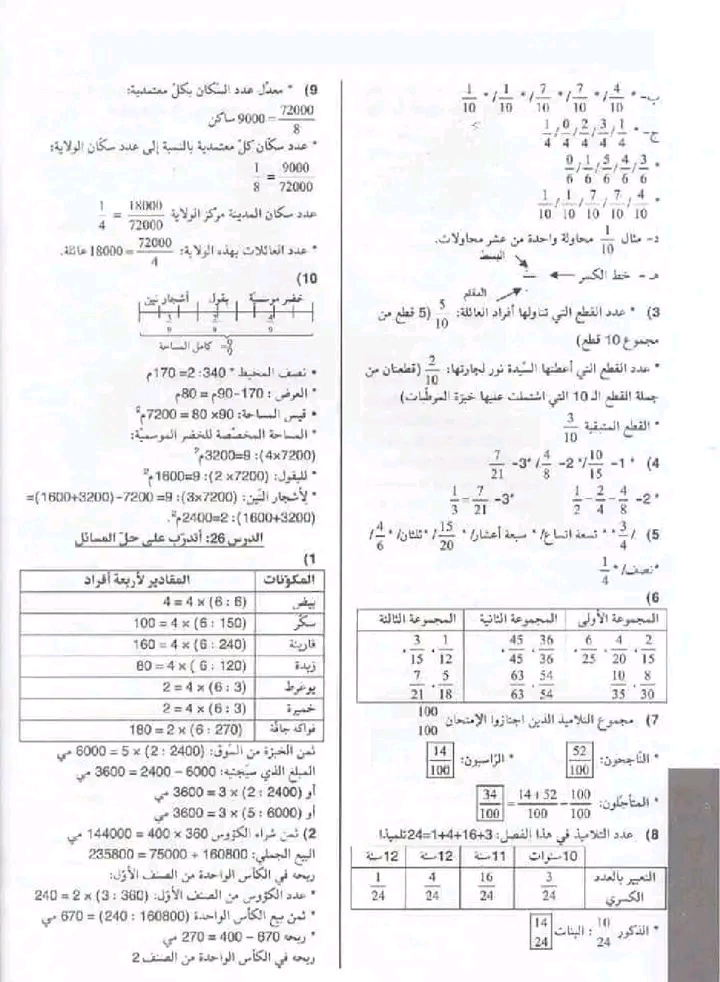 ب- * 4/10 / * 7/10 / * 7/10 / * 1/10 / * 1/10
ج- 1/4 / 3/4 / 2/4 / 0/4 / 1/4
* 3/6 / 4/6 / 5/6 / 1/6 / 0/6
* 4/10 / 7/10 / 7/10 / 1/10 / 1/10
د- مثال 1/10 محاولة واحدة من عشر محاولات.
البسط
هـ- خط الكسر
المقام
3) * عدد القطع التي تناولها أفراد العائلة: 5/10 (5 قطع من
مجموع 10 قطع)
* عدد القطع التي أعطتها السيّدة نور لجارتها: 2/10 (قطعتان من
جملة القطع الـ 10 التي اشتملت عليها خبزة المرطّبات)
* القطع المتبقية 3/10
4) * 1- 10/15 /* 2- 4/8 /* 3- 7/21
* 2- 4/8 - 2/4 - 1/2 * 3- 7/21 = 1/3
5) / 3/4 * * تسعة اتساع/ * سبعة أعشار/ * 15/20 / * ثلثان/ * 4/6 /
* نصف/ * 1/4
6)
المجموعة الأولى المجموعة الثانية المجموعة الثالثة
2/15 . 4/20 . 6/25 36/36 . 45/45 1/12 . 3/15
8/30 . 10/35 54/54 . 63/63 5/18 . 7/21
7) مجموع التلاميذ الذين اجتازوا الإمتحان 100/100
* النّاجحون: 52/100 * الرّاسبون: 14/100
* المتأجّلون: 100/100 - 14+52/100 = 34/100
8) عدد التلاميذ في هذا الفصل: 3+16+4+1=24تلميذا
10 سنوات 11 سنة 12سنة 12سنة
التعبير بالعدد الكسري 3/24 16/24 4/24 1/24
* الذكور 10/24 : البنات 14/24
9) * معدّل عدد السّكان بكلّ معتمدية:
72000/8 = 9000 ساكن
* عدد سكّان كلّ معتمدية بالنسبة إلى عدد سكّان الولاية:
9000/72000 = 1/8
عدد سكان المدينة مركز الولاية 18000/72000 = 1/4
* عدد العائلات بهذه الولاية: 72000/4 = 18000 عائلة.
10)
خضر موسميّة بقول أشجار تين
4/9 2/9 3/9
9/9 = كامل المساحة
• نصف المحيط * 340: 2= 170م
* العرض: 170-90م = 80م
• قيس المساحة: 90× 80 = 7200م²
* المساحة المخصّصة للخضر الموسميّة:
(4×7200): 9=3200م²
* للبقول: (7200 ×2): 9=1600م²
* لأشجار التّين: (3×7200): 9= 7200-(3200+1600)=
(3200+1600): 2=2400م².
الدرس 26: أتدرّب على حلّ المسائل
1)
المكوّنات المقادير لأربعة أفراد
بيض (6 : 6) × 4 = 4
سكّر (150 : 6) × 4 = 100
فارينة (240 : 6) × 4 = 160
زبدة (120 : 6 ) × 4 = 80
يوغرط (3 : 6) × 4 = 2
خميرة (3 : 6) × 4 = 2
فواكه جافّة (270 : 6) × 2 = 180
ثمن الخبزة من السّوق: (2400 : 2) × 5 = 6000 مي
المبلغ الذي سيجنّبه: 6000 – 2400 = 3600 مي
أو (2400 : 2) × 3 = 3600 مي
أو (6000 : 5) × 3 = 3600 مي
2) ثمن شراء الكؤوس 360 × 400 = 144000 مي
البيع الجملي: 160800 + 75000 = 235800
ربحه في الكأس الواحدة من الصنف الأوّل:
* عدد الكؤوس من الصنف الأوّل: (360 : 3) × 2 = 240
* ثمن بيع الكأس الواحدة (160800 : 240) = 670 مي
* ربحه 670 – 400 = 270 مي
ربحه في الكأس الواحدة من الصنف 2